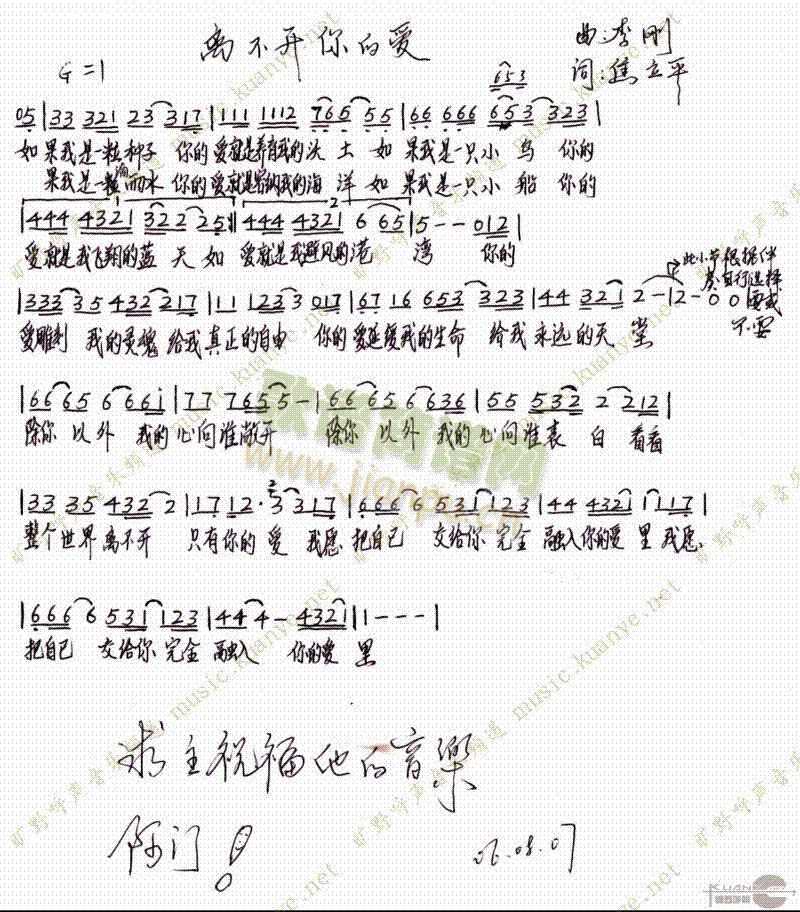 离不开你的爱
曲:李刚
G=1
词:焦立平
653
05|33 321 23 317|111 1112 765 55|66 666 653 323|
如果我是一粒种子 你的爱就是养育我的沃土 如果我是一只小鸟 你的
果我是一滴雨水 你的爱就是容纳我的海洋 如果我是一只小船 你的
1 2
|444 4321 322 225:||444 4321 6 65|5--012|
爱就是我飞翔的蓝天 如 爱就是我避风的港湾 你的
此小节根据伴奏自行选择要或不要
|333 35 432 217|11 1233 017|67 16 653 323|44 321 2-|2-00|
爱雕刻 我的灵魂 给我真正的自由 你的爱延续我的生命 给我永远的天堂
|6665 6 661|77 7655-|6665 6 636|55 532 2 212|
除你以外 我的心向谁敞开 除你以外 我的心向谁表白 看看
|33 35 432 2|17 12·3 3317|666 6 531 123|44 4321 1117|
整个世界离不开 只有你的爱 我愿把自己 交给你 完全融入你的爱里 我愿
|666 6 531 123|444-4321||1---|
把自己 交给你 完全融入 你的爱里
求主祝福他的音樂
阿门!
06.08.07
歌谱简谱网
www.jianpu.cn
旷野呼声音乐频道 music.kuanye.net
KUANYE